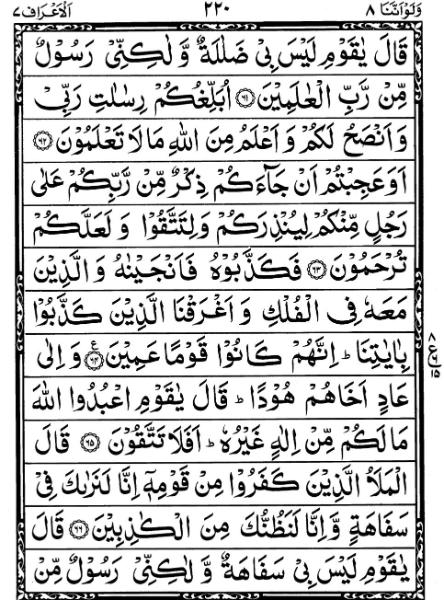 وَلَوْاَنَّنَا ٨ ٢٢٠ اَلْاَعْرَاف ٧
قَالَ يٰقَوْمِ لَيْسَ بِيْ ضَلٰلَةٌ وَّ لٰكِنِّيْ رَسُوْلٌ
مِّنْ رَّبِّ الْعٰلَمِيْنَ ﴿٦١﴾ اُبَلِّغُكُمْ رِسٰلٰتِ رَبِّيْ
وَ اَنْصَحُ لَكُمْ وَ اَعْلَمُ مِنَ اللّٰهِ مَا لَا تَعْلَمُوْنَ ﴿٦٢﴾
اَوَعَجِبْتُمْ اَنْ جَآءَكُمْ ذِكْرٌ مِّنْ رَّبِّكُمْ عَلٰى
رَجُلٍ مِّنْكُمْ لِيُنْذِرَكُمْ وَ لِتَتَّقُوْا وَ لَعَلَّكُمْ
تُرْحَمُوْنَ ﴿٦٣﴾ فَكَذَّبُوْهُ فَاَنْجَيْنٰهُ وَ الَّذِيْنَ
مَعَهٗ فِي الْفُلْكِ وَ اَغْرَقْنَا الَّذِيْنَ كَذَّبُوْا
بِاٰيٰتِنَا ؕ اِنَّهُمْ كَانُوْا قَوْمًا عَمِيْنَ ﴿٦٤﴾ وَ اِلٰى
٨ ع ١٥
عَادٍ اَخَاهُمْ هُوْدًا ؕ قَالَ يٰقَوْمِ اعْبُدُوا اللّٰهَ
مَا لَكُمْ مِّنْ اِلٰهٍ غَيْرُهٗ ؕ اَفَلَا تَتَّقُوْنَ ﴿٦٥﴾ قَالَ
الْمَلَاُ الَّذِيْنَ كَفَرُوْا مِنْ قَوْمِهٖۤ اِنَّا لَنَرٰىكَ فِيْ
سَفَاهَةٍ وَّ اِنَّا لَنَظُنُّكَ مِنَ الْكٰذِبِيْنَ ﴿٦٦﴾ قَالَ
يٰقَوْمِ لَيْسَ بِيْ سَفَاهَةٌ وَّ لٰكِنِّيْ رَسُوْلٌ مِّنْ